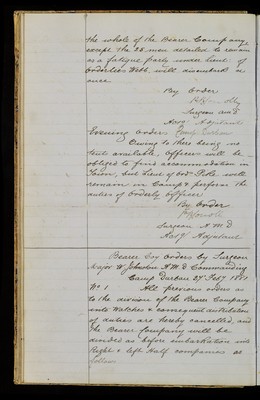 the whole of the Bearer Company
except the 25 men detailed to remain
as a fatigue party under Lieut of
Orderlies Webb, will disembark at
once
By Order
Surgeon AMD
Actg Adjutant
Evening Orders Camp Durban
Owing to there being no
tent available, Officers will be
obliged to find accommodation in
Town, but Lieut of Ord Pike will
remain in Camp & perform the
duties of Orderly Officer
By Order
Surgeon A M D
Act/g Adjutant
Bearer Coy Orders by Surgeon
Major W Johnston A.M.D Commanding
Camp Durban 27 Feby 1881
No 1 All previous orders as
to the division of the Bearer Company
into Watches & consequent
of duties are hereby cancelled, and
the Bearer Company will be
divided as before embarkation into
Right & left Half companies as
follows